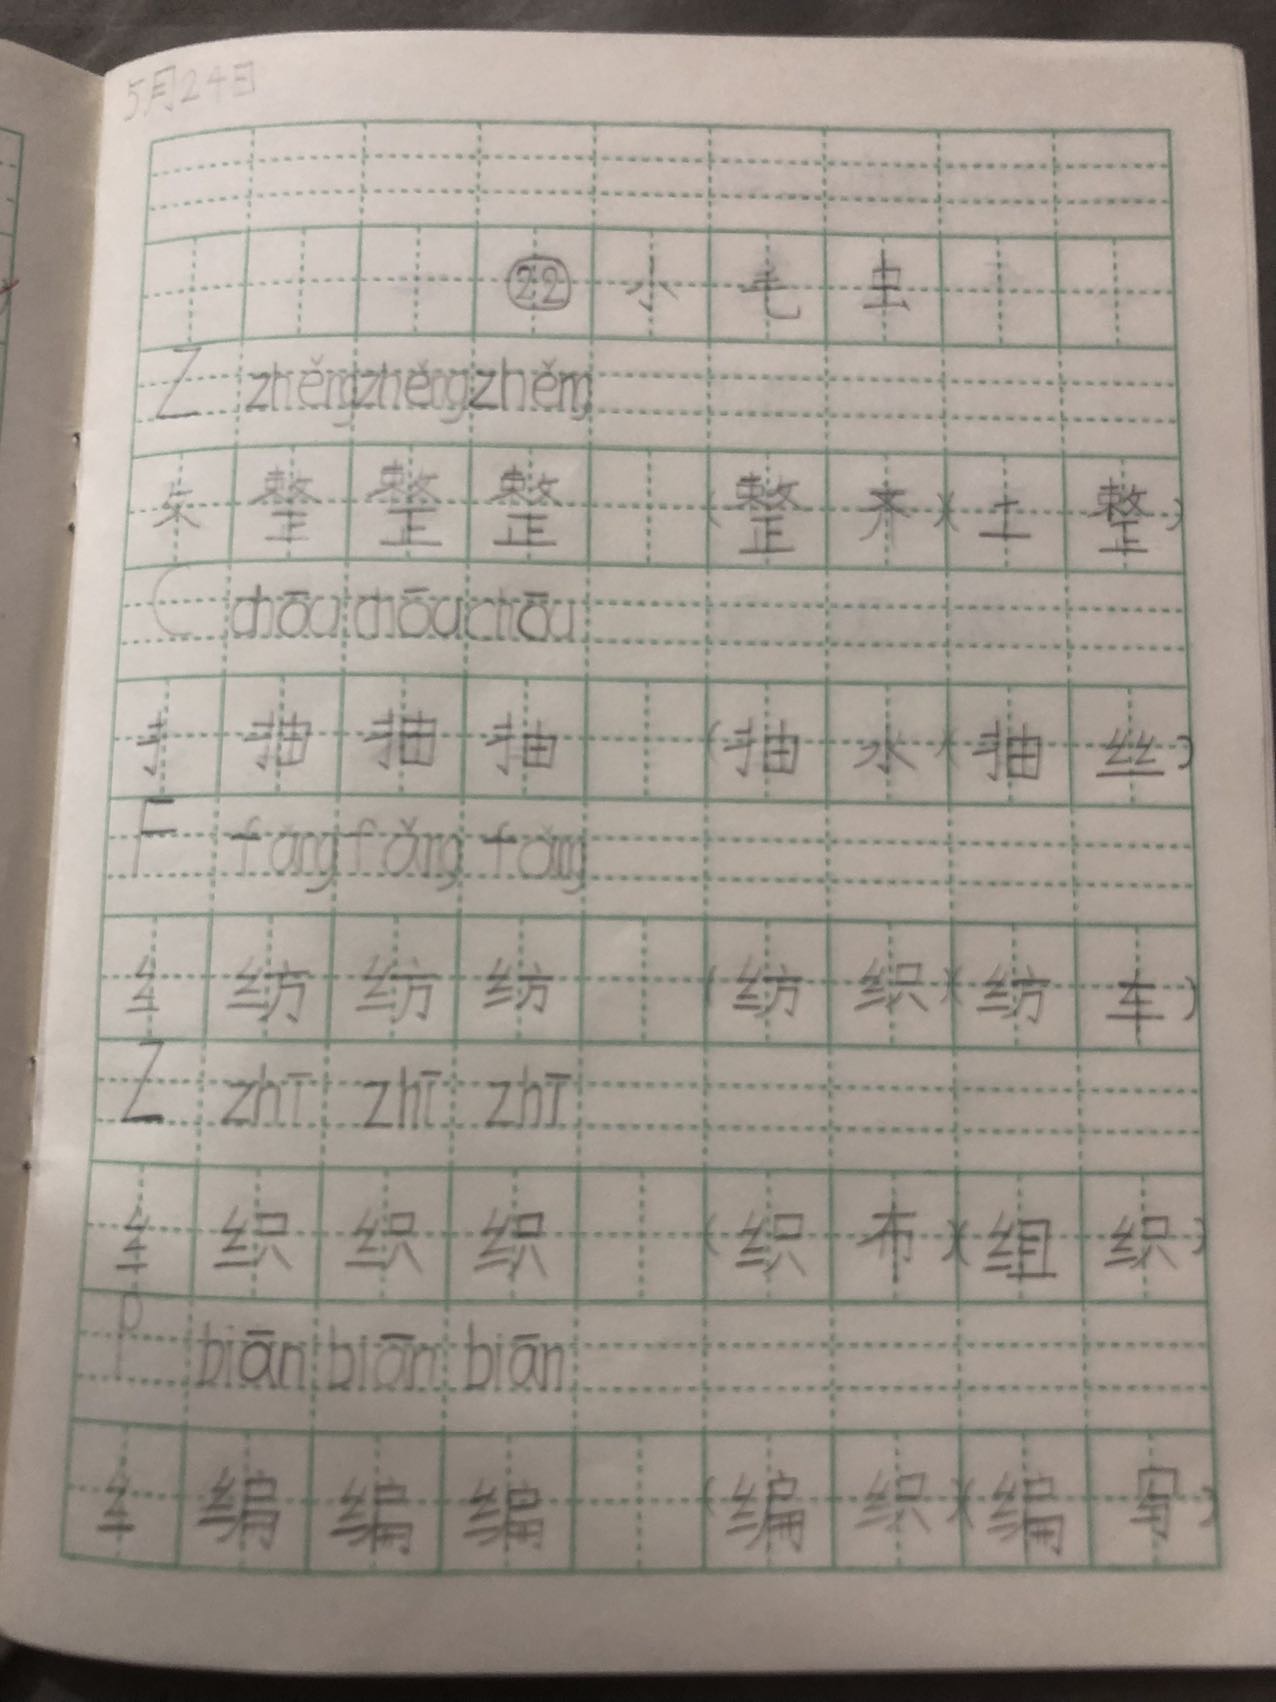 5月24日
㉒ 小毛虫
Z zhěng zhěng zhěng
攵 整 整 整 (整齐)(工整)
C chōu chōu chōu
扌 抽 抽 抽 (抽水)(抽丝)
F fǎng fǎng fǎng
纟 纺 纺 纺 (纺织)(纺车)
Z zhī zhī zhī
纟 织 织 织 (织布)(组织)
P biān biān biān
纟 编 编 编 (编织)(编写)